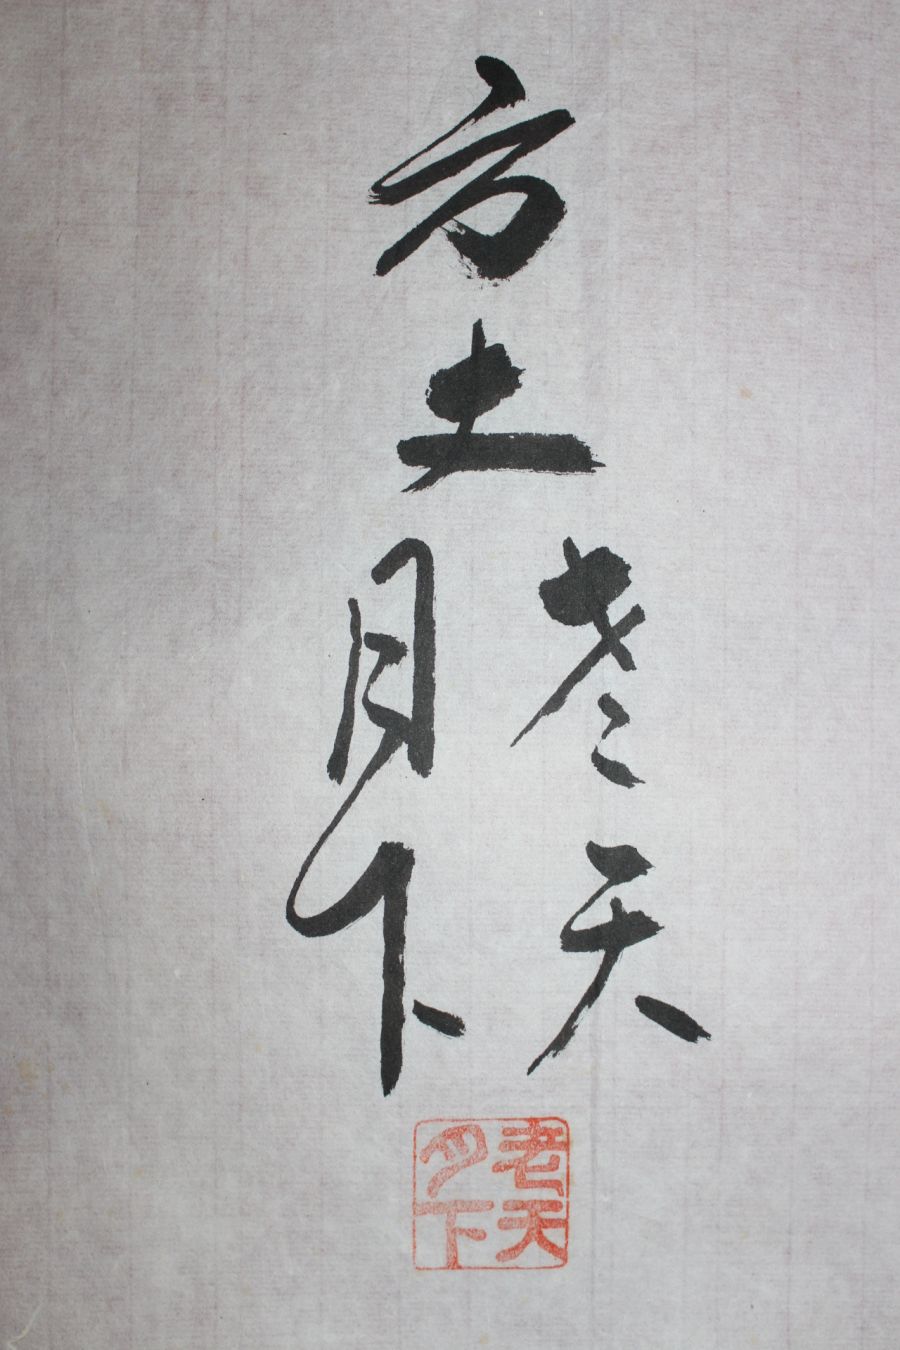 方土
老天
月下
老天
月下